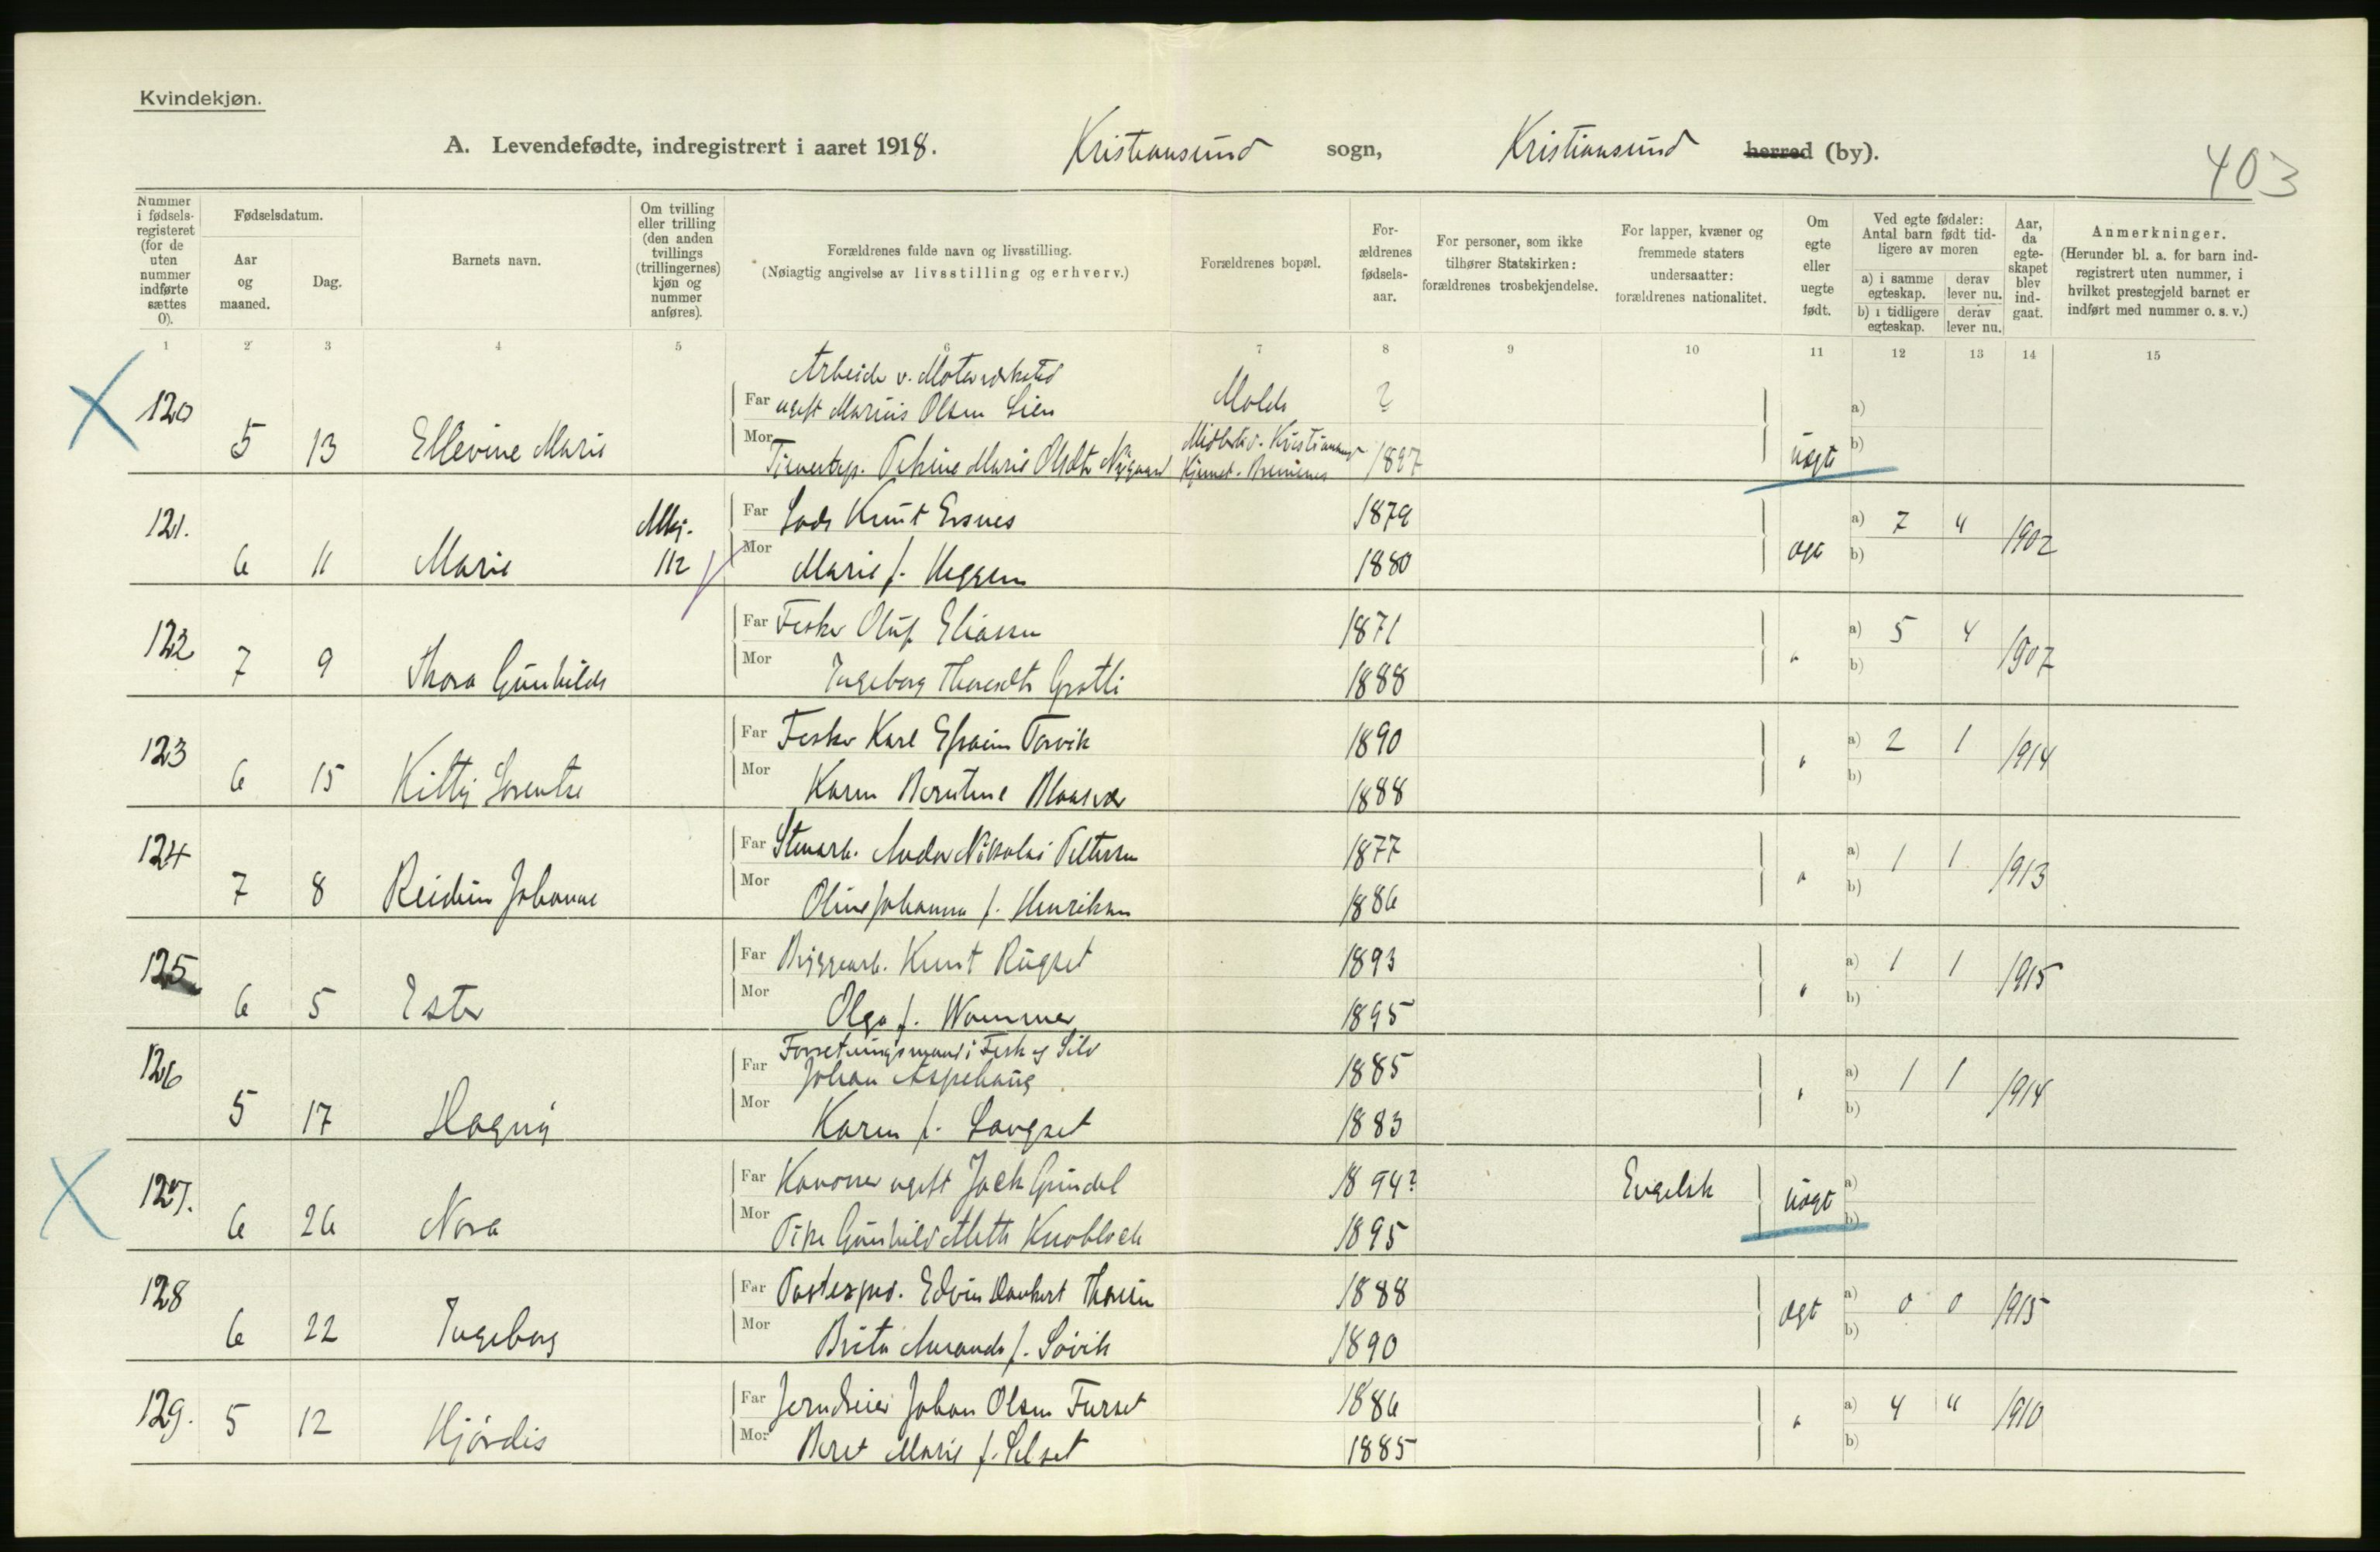 Kvindekjøn.
A. Levendefødte, indregistrert i aaret 1918. Kristiansund sogn, Kristiansund herred (by).
403
Nummer i fødsels-registeret (for de uten nummer indførte sættes 0).
Fødselsdatum.
Aar og maaned.
Dag.
Barnets navn.
Om tvilling eller trilling (den anden tvillings (trillingernes) kjøn og nummer anføres).
Forældrenes fulde navn og livsstilling.
(Nøiagtig angivelse av livsstilling og erhverv.)
Forældrenes bopæl.
For-ældrenes fødsels-aar.
For personer, som ikke tilhører Statskirken: forældrenes trosbekjendelse.
For lapper, kvæner og fremmede staters undersaatter: forældrenes nationalitet.
Om egte eller uegte født.
Ved egte fødsler: Antal barn født tid-ligere av moren
a) i samme egteskap. derav lever nu.
b) i tidligere egteskap. derav lever nu.
Aar, da egte-skapet blev ind-gaat.
Anmerkninger.
(Herunder bl. a. for barn ind-registrert uten nummer, i hvilket prestegjeld barnet er indført med nummer o. s. v.)
1 2 3 4 5 6 7 8 9 10 11 12 13 14 15
120 5 13 Ellevine Marie
Far ugift Marius Olsen Lien Molde ?
Mor Marie Olsdtr 1897 uegte a) b)
121. 6 11 Marie Mkj. 112
Far Lods Knut Ersnes 1879
Mor Marie f. Heggem 1880 egte a) 7 4 b) 1902
122 7 9 Thora Gunhilde
Far Fisker Oluf Eliassen 1871
Mor Ingeborg Grøtli 1888 " a) 5 4 b) 1907
123 6 15 Kitty Lorentse
Far Fisker Karl Efraim Torvik 1890
Mor Karen Berntine 1888 " a) 2 1 b) 1914
124 7 8 Reidun Johanne
Far Stenarb. Nikolai Pettersen 1877
Mor Oline Johanna f. Henriksen 1886 " a) 1 1 b) 1913
125 6 5 Ester
Far Bryggearb. Knut Rugset 1893
Mor Olga f. Wammer 1895 " a) 1 1 b) 1915
126 5 17 Hagny
Forretningsmand i Fisk og Sild
Far Johan Aspehaug 1885
Mor Karen f. Langset 1883 " a) 1 1 b) 1914
127. 6 26 Nora
Far ugift Jack Grindel 1894? Engelsk
Mor Pike Gunhild Mette Knobloch 1895 uegte a) b)
128 6 22 Ingeborg
Far Postexped. Edvin 1888
Mor Brita f. Søvik 1890 egte a) 0 0 b) 1915
129. 5 12 Hjørdis
Far Jerndreier Johan Olsen Furset 1886
Mor Beret Marie f. Selset 1885 " a) 4 " b) 1910